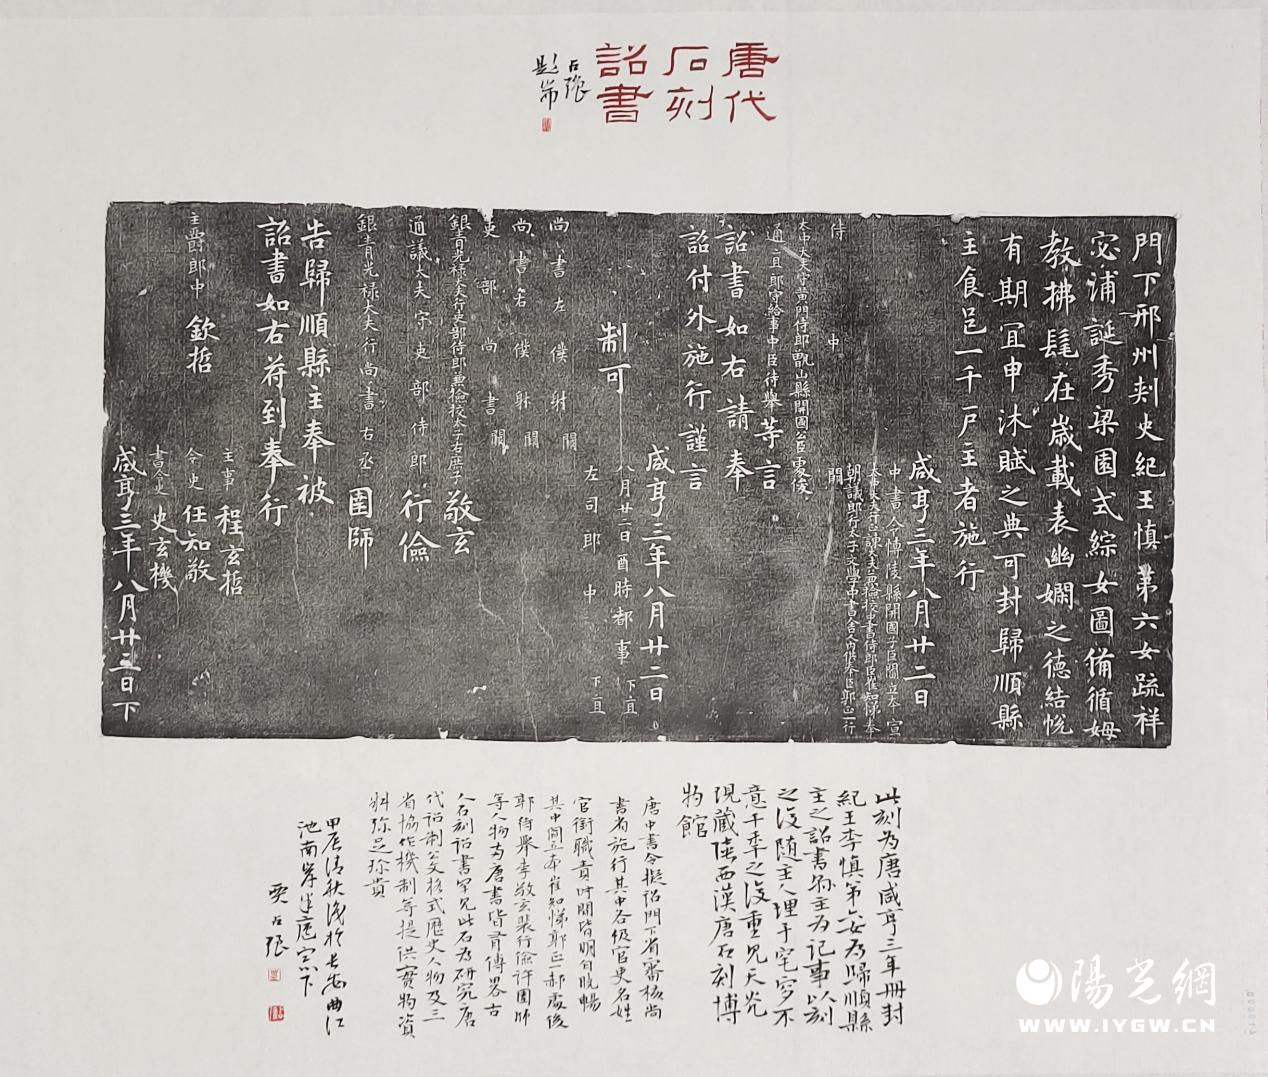 唐代
石刻
詔書
占張
題耑
門下邢州刺史紀王慎第六女疏祥
宓浦誕秀梁園式綜女圖備循姆
教拂髦在歲載表幽嫻之德結帨
有期宜申沐賦之典可封歸順縣
主食邑一千戶主者施行
咸亨三年八月廿二日
中書令博陵縣開國子臣閻立本宣
太中大夫行諫議大夫兼檢校中書侍郎臣崔知悌奉
朝議郎行太子文學中書舍人內供奉臣郭正一行
侍中闕
太中大夫守黃門侍郎甑山縣開國公臣處俊
通直郎守給事中臣待舉等言
詔書如右請奉
詔付外施行謹言
咸亨三年八月廿二日
制可
八月廿二日酉時都事下直
左司郎中下直
尚書左僕射闕
尚書右僕射闕
吏部尚書闕
銀青光祿大夫行吏部侍郎兼檢校太子右庶子敬玄
通議大夫守吏部侍郎行儉
銀青光祿大夫行尚書右丞圉師
告歸順縣主奉被
詔書如右符到奉行
主事程玄哲
主爵郎中欽哲
令史任知敬
書令史史玄機
咸亨三年八月廿三日下
此刻為唐咸亨三年冊封
紀王李慎第六女為歸順縣
主之詔書縣主為記事以刻
之沒隨主人埋于窀穸不
意千年之後重見天光
現藏陝西漢唐石刻博
物館
唐中書令擬詔門下省審核尚
書省施行其中各級官吏名姓
官銜職責時間皆明白曉暢
其中閻立本崔知悌郭正一郝處俊
郭待舉李敬玄裴行儉許圉師
等人物兩唐書皆有傳略古
人石刻詔書罕見此石為研究唐
代詔制公文格式歷史人物及三
省協作機制等提供實物資
料殊足珍貴
甲辰清秋後於長安曲江
池南岸半廬窗下
賈占張
陽光網
WWW.IYGW.CN